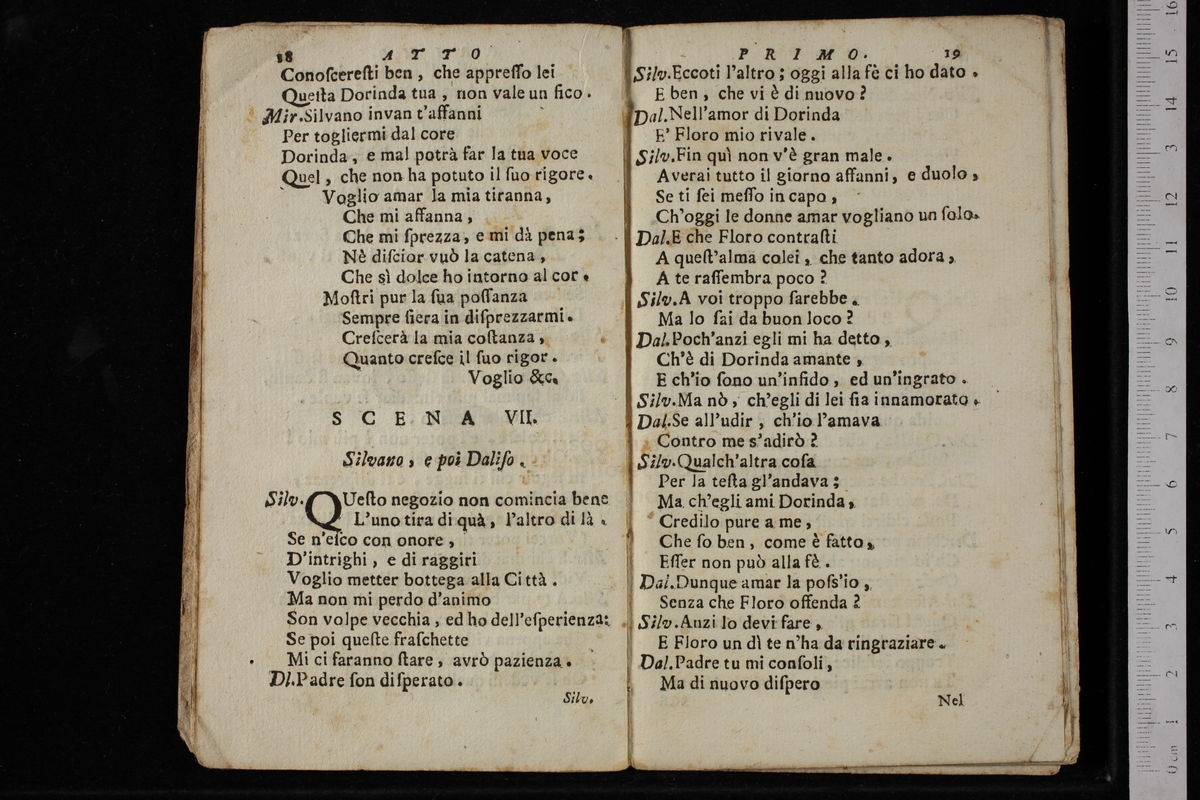 18 ATTO
Conoſcereſti ben, che appreſſo lei
Queſta Dorinda tua, non vale un fico.
Mir. Silvano invan t'affanni
Per togliermi dal core
Dorinda, e mal potrà far la tua voce
Quel, che non ha potuto il ſuo rigore.
Voglio amar la mia tiranna,
Che mi affanna,
Che mi ſprezza, e mi dà pena;
Nè diſcior vuò la catena,
Che sì dolce ho intorno al cor.
Moſtri pur la ſua poſſanza
Sempre fiera in diſprezzarmi.
Creſcerà la mia coſtanza,
Quanto creſce il ſuo rigor.
Voglio &c.
SCENA VII.
Silvano, e poi Daliſo.
Silv. QUeſto negozio non comincia bene
L'uno tira di quà, l'altro di là.
Se n'eſco con onore,
D'intrighi, e di raggiri
Voglio metter bottega alla Città.
Ma non mi perdo d'animo
Son volpe vecchia, ed ho dell'eſperienza:
Se poi queſte fraſchette
Mi ci faranno ſtare, avrò pazienza.
Dl. Padre ſon diſperato.
Silv.
PRIMO. 19
Silv. Eccoti l'altro; oggi alla fè ci ho dato.
E ben, che vi è di nuovo?
Dal. Nell'amor di Dorinda
E' Floro mio rivale.
Silv. Fin quì non v'è gran male.
Averai tutto il giorno affanni, e duolo,
Se ti ſei meſſo in capo,
Ch'oggi le donne amar vogliano un ſolo.
Dal. E che Floro contraſti
A queſt'alma colei, che tanto adora,
A te raſſembra poco?
Silv. A voi troppo ſarebbe.
Ma lo ſai da buon loco?
Dal. Poch'anzi egli mi ha detto,
Ch'è di Dorinda amante,
E ch'io ſono un'infido, ed un'ingrato.
Silv. Ma nò, ch'egli di lei ſia innamorato.
Dal. Se all'udir, ch'io l'amava
Contro me s'adirò?
Silv. Qualch'altra coſa
Per la teſta gl'andava;
Ma ch'egli ami Dorinda,
Credilo pure a me,
Che ſo ben, come è fatto,
Eſſer non può alla fè.
Dal. Dunque amar la poſs'io,
Senza che Floro offenda?
Silv. Anzi lo devi fare,
E Floro un dì te n'ha da ringraziare.
Dal. Padre tu mi conſoli,
Ma di nuovo diſpero
Nel
0 cm 1 2 3 4 5 6 7 8 9 10 11 12 13 14 15 16